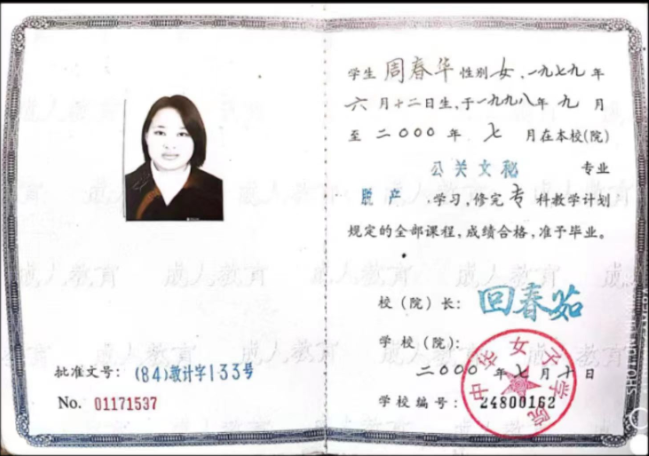 批准文号: (84)教计字133号
No. 01171537
学生 周春华 性别 女, 一九七九 年
六 月 十二 日生, 于 一九九八 年 九 月
至 二000 年 七 月在本校(院)
公关文秘 专业
脱产 学习, 修完 专 科教学计划
规定的全部课程, 成绩合格, 准予毕业。
校(院)长: 回春茹
学校(院):
二000年七月十日
学校编号: 24800162
中华女子学院
成人教育